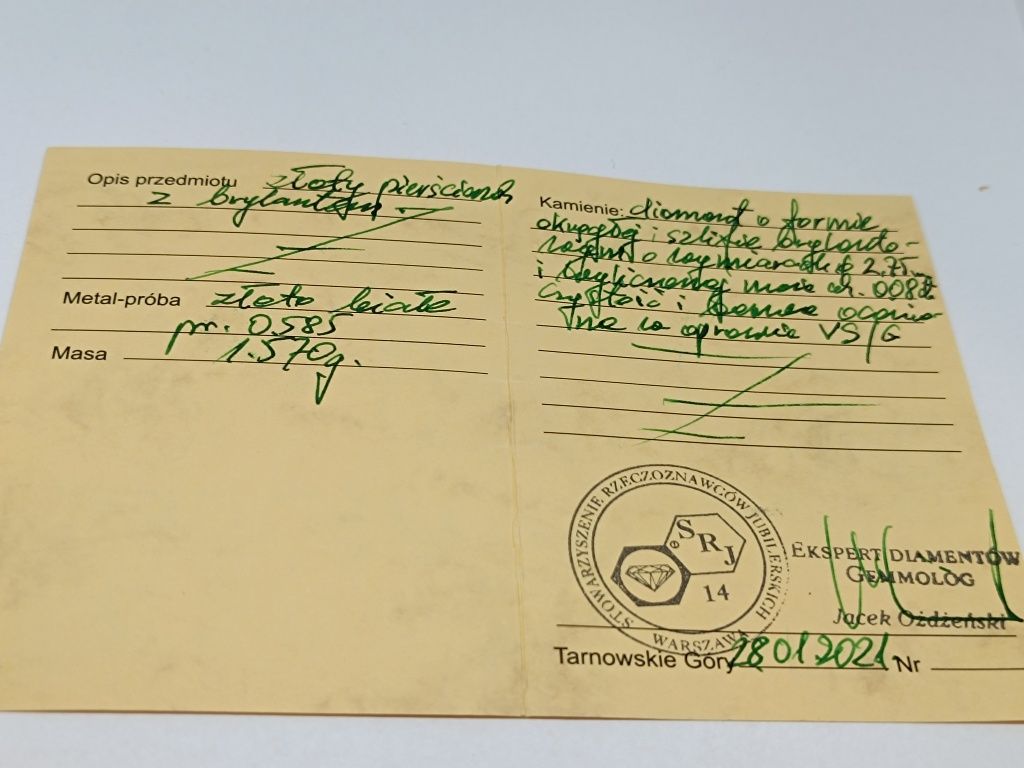 Opis przedmiotu złoty pierścionek
z brylantem
Metal-próba złoto białe
pr. 0.585
Masa 1.570g.
Kamienie: diament o formie
okrągłej i szlifie brylanto-
wym o wymiarach ϕ 2.75
i masie 0.08
czystość i barwa ocenio
ne w oprawie VS/G
STOWARZYSZENIE RZECZOZNAWCÓW JUBILERSKICH
SRJ
14
WARSZAWA
EKSPERT DIAMENTÓW
GEMMOLOG
Jacek Ożdżeński
Tarnowskie Góry 28 01 2021 Nr